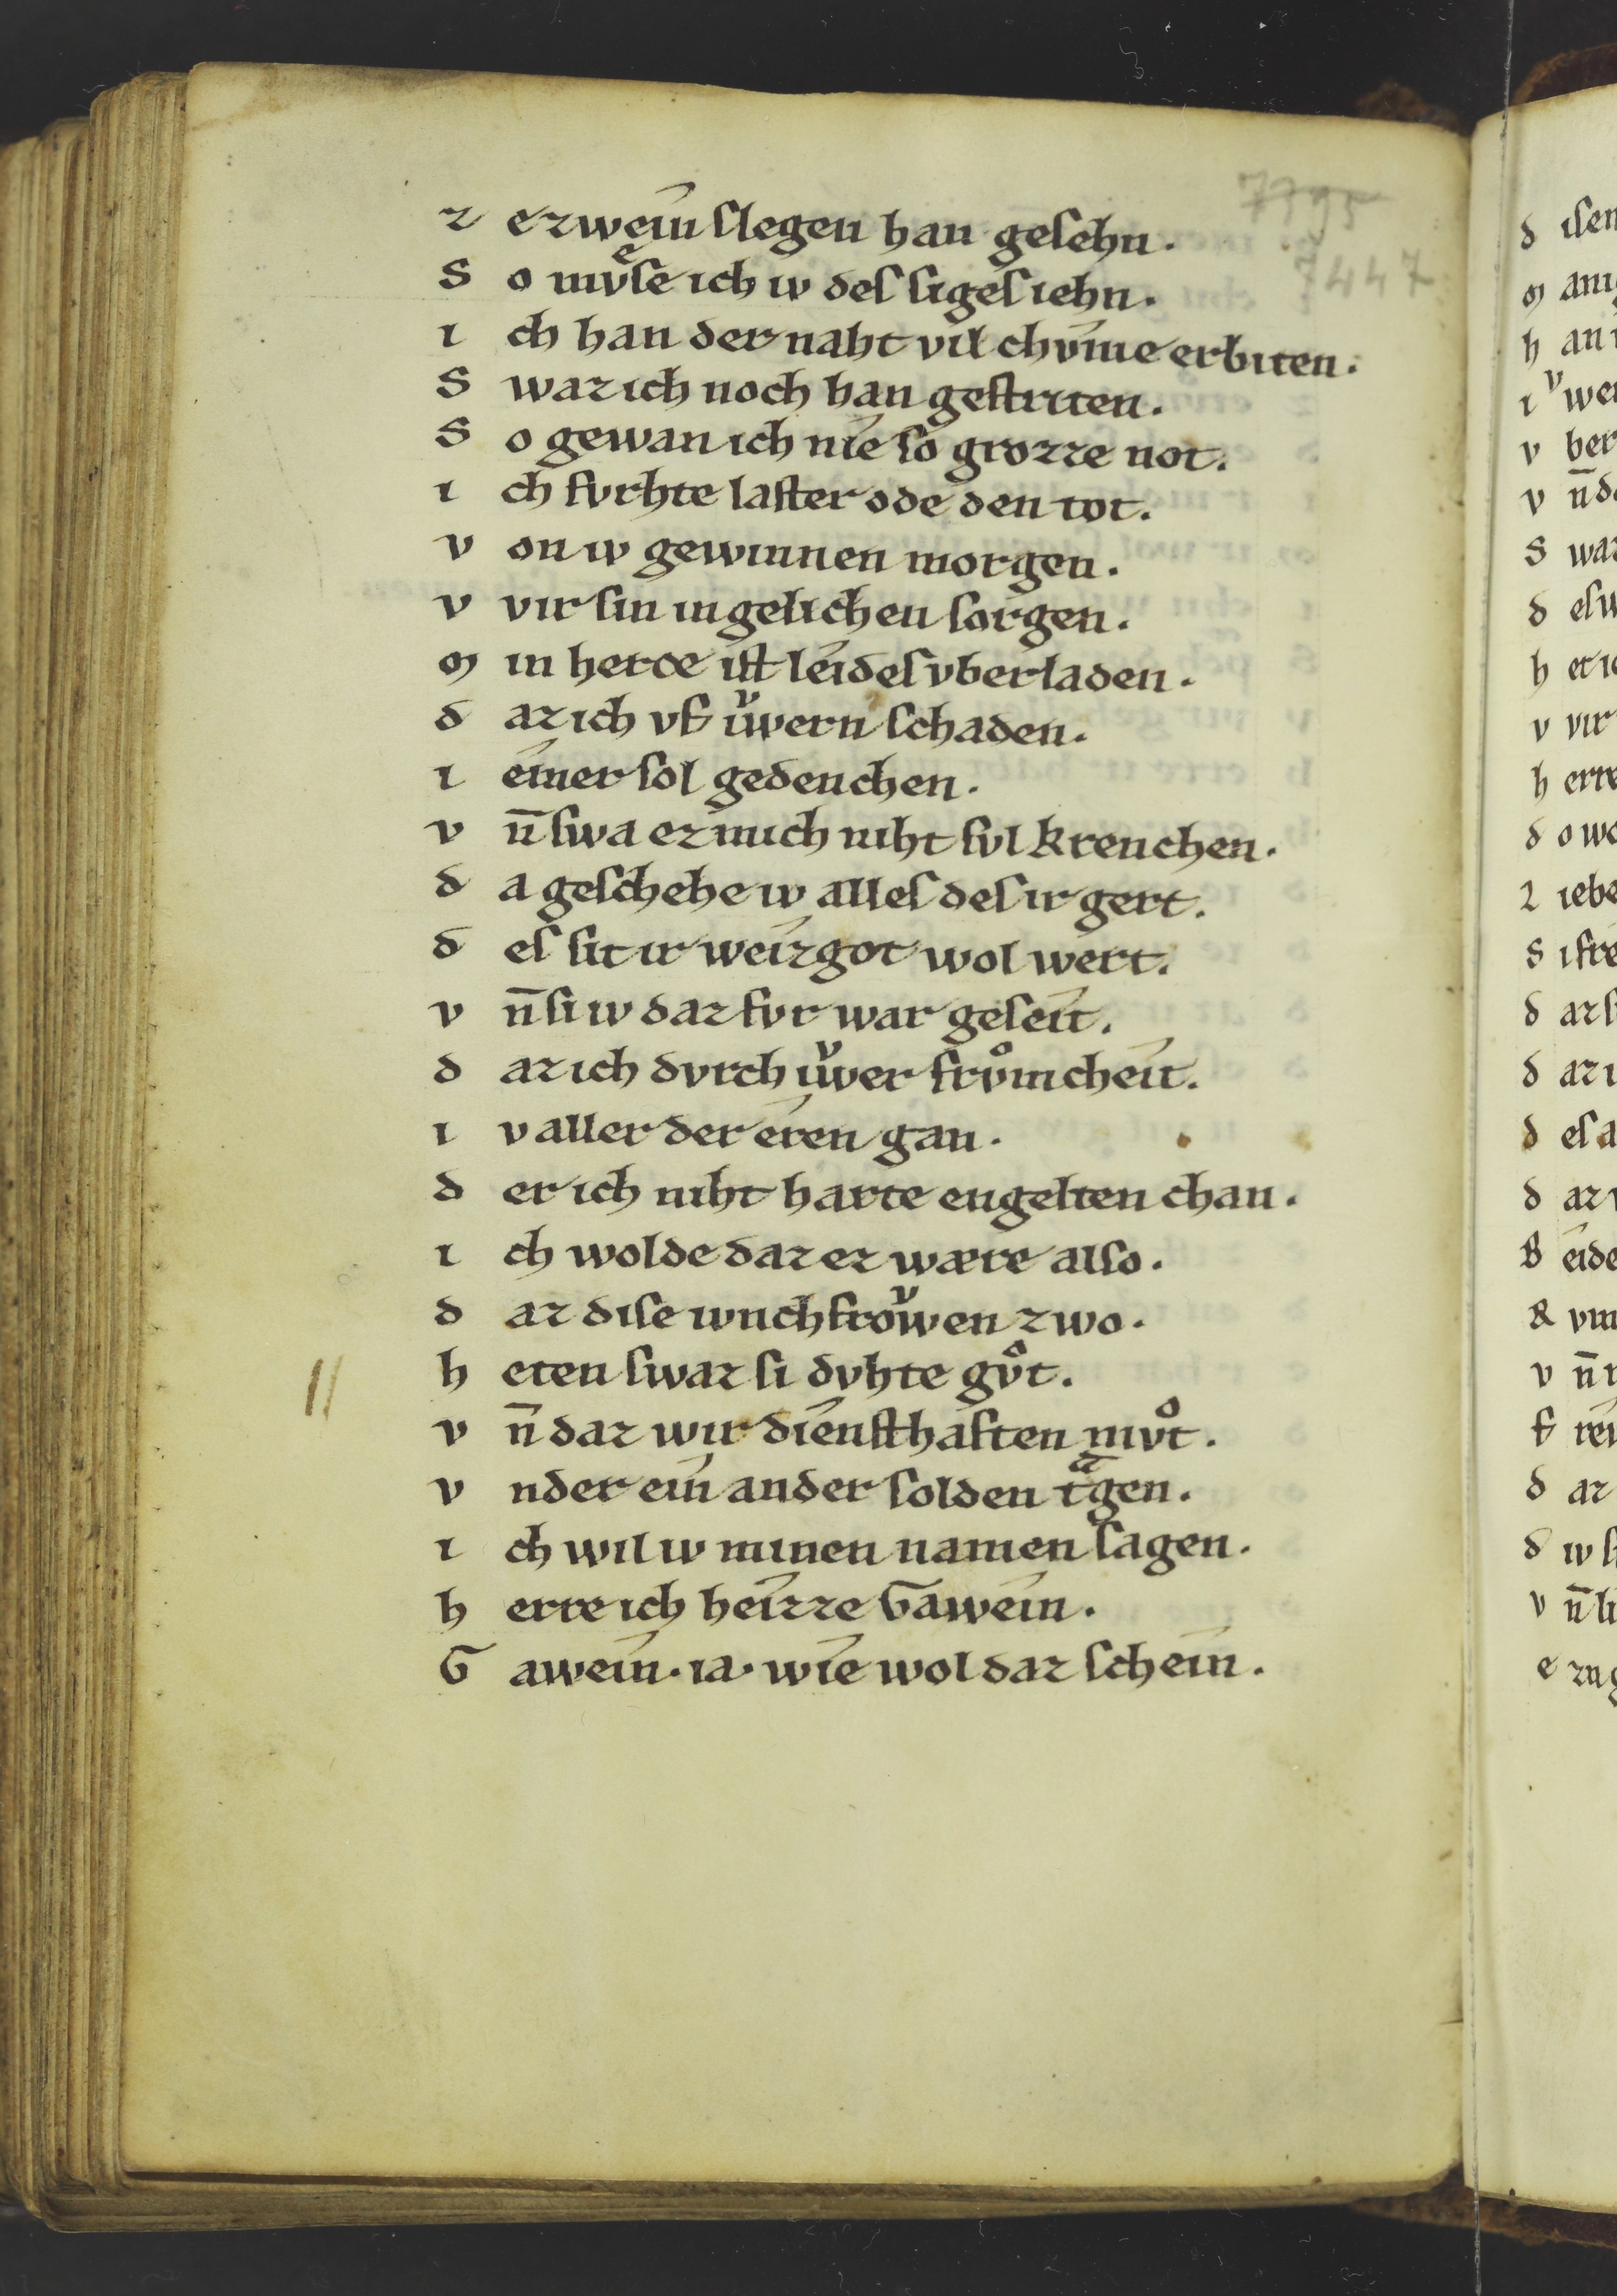 7795
7447
z ezwein slegen han gesehn.
S o mvͤse ich iv des siges iehn.
i ch han der naht vil chvme erbiten.
S waz ich noch han gestriten.
S o gewan ich nie so grozze not.
i ch fvrhte laster ode den tot.
v on iv gewinnen morgen.
v vir sin in gelichen sorgen.
m in herce ist leides vberladen.
d az ich vf iwͮern schaden.
i eimer sol gedenchen.
v n̄ swa ez mich niht svl krenchen.
d a geschehe iv alles des ir gert.
d es sit ir weizgot wol wert.
v n̄ si iv daz fvr war geseit.
d az ich dvrch iwͮer frvͦmcheit.
i v aller der eren gan.
d er ich niht harte engelten chan.
i ch wolde daz ez wære also.
d az dise ivnchfrowͮen zwo.
h eten swaz si dvhte gvͦt.
v n̄ daz wir diensthaften mvͦt.
v nder ein ander solden tͣgen.
i ch wil iv minen namen sagen.
h erre ich heizze Gawein.
G awein. ia. wie wol daz schein.
d isen
m ani
h an i
i wͮer
v ber
v n̄ d
S waz
d es w
h et ic
v vir
h erre
d o wo
l iebe
S i fre
d az s
d az i
d es a
d az v
B eide
R vm
v n̄ r
f rei
d az
d iv s
v n̄ li
e z ug